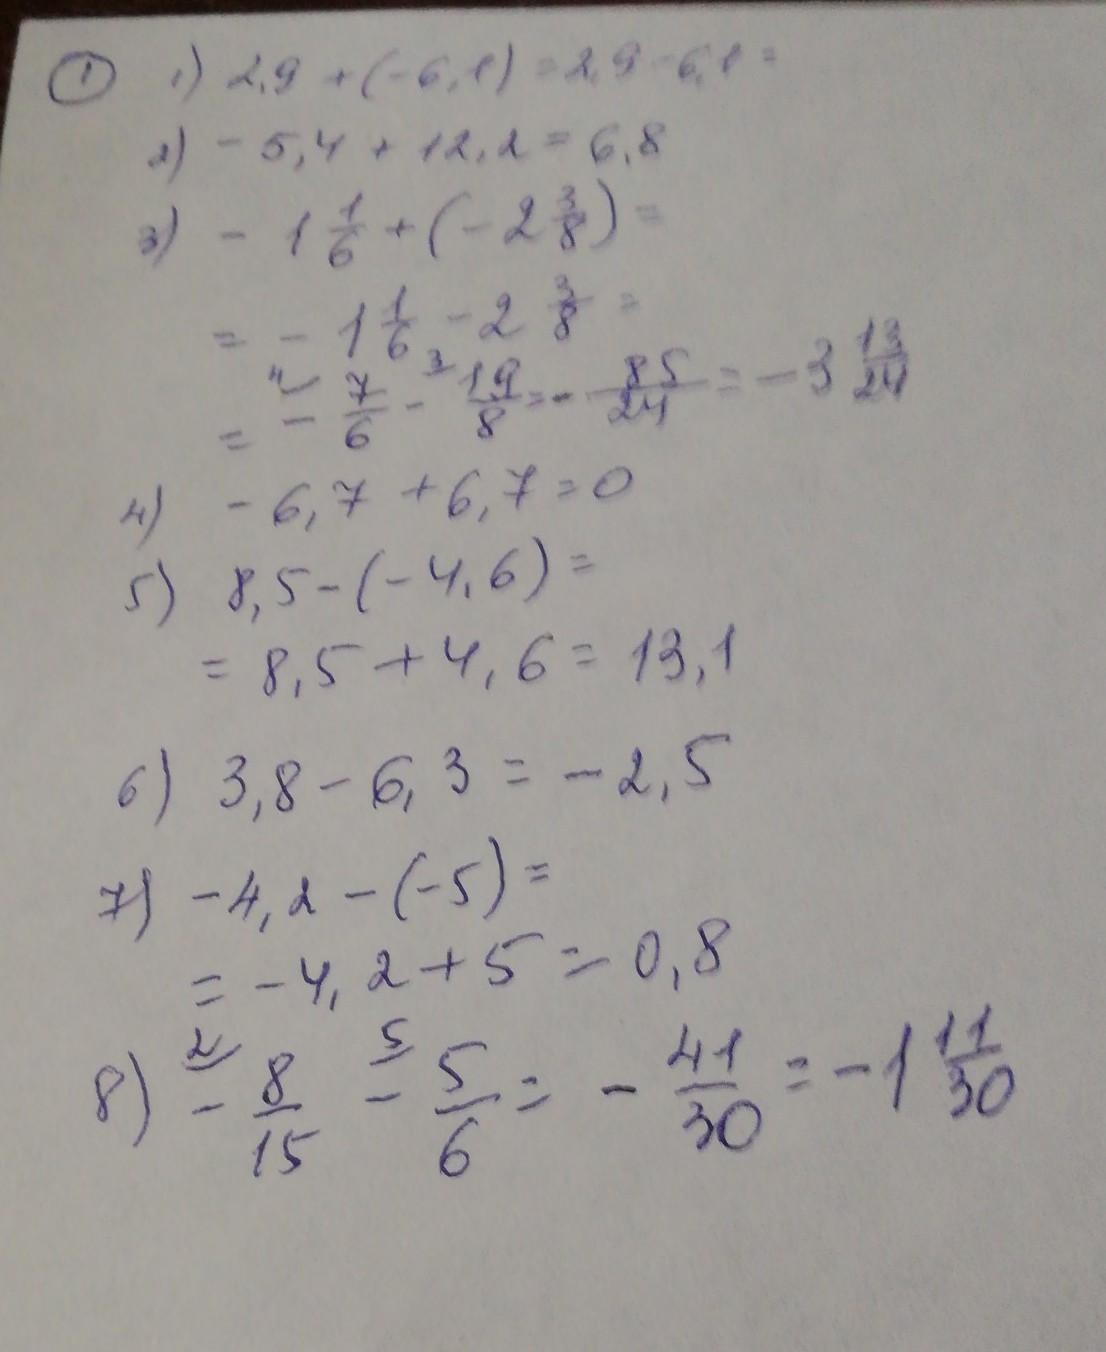 ① 1) 2,9 + (-6,1) = 2,9 - 6,1 =
2) - 5,4 + 12,2 = 6,8
3) - 1 1/6 + (- 2 3/8) =
= - 1 1/6 - 2 3/8 =
= - 7/6 - 19/8 = - 85/24 = - 3 13/24
4) - 6,7 + 6,7 = 0
5) 8,5 - (- 4,6) =
= 8,5 + 4,6 = 13,1
6) 3,8 - 6,3 = - 2,5
7) - 4,2 - (-5) =
= - 4,2 + 5 = 0,8
8) - 8/15 - 5/6 = - 41/30 = - 1 11/30